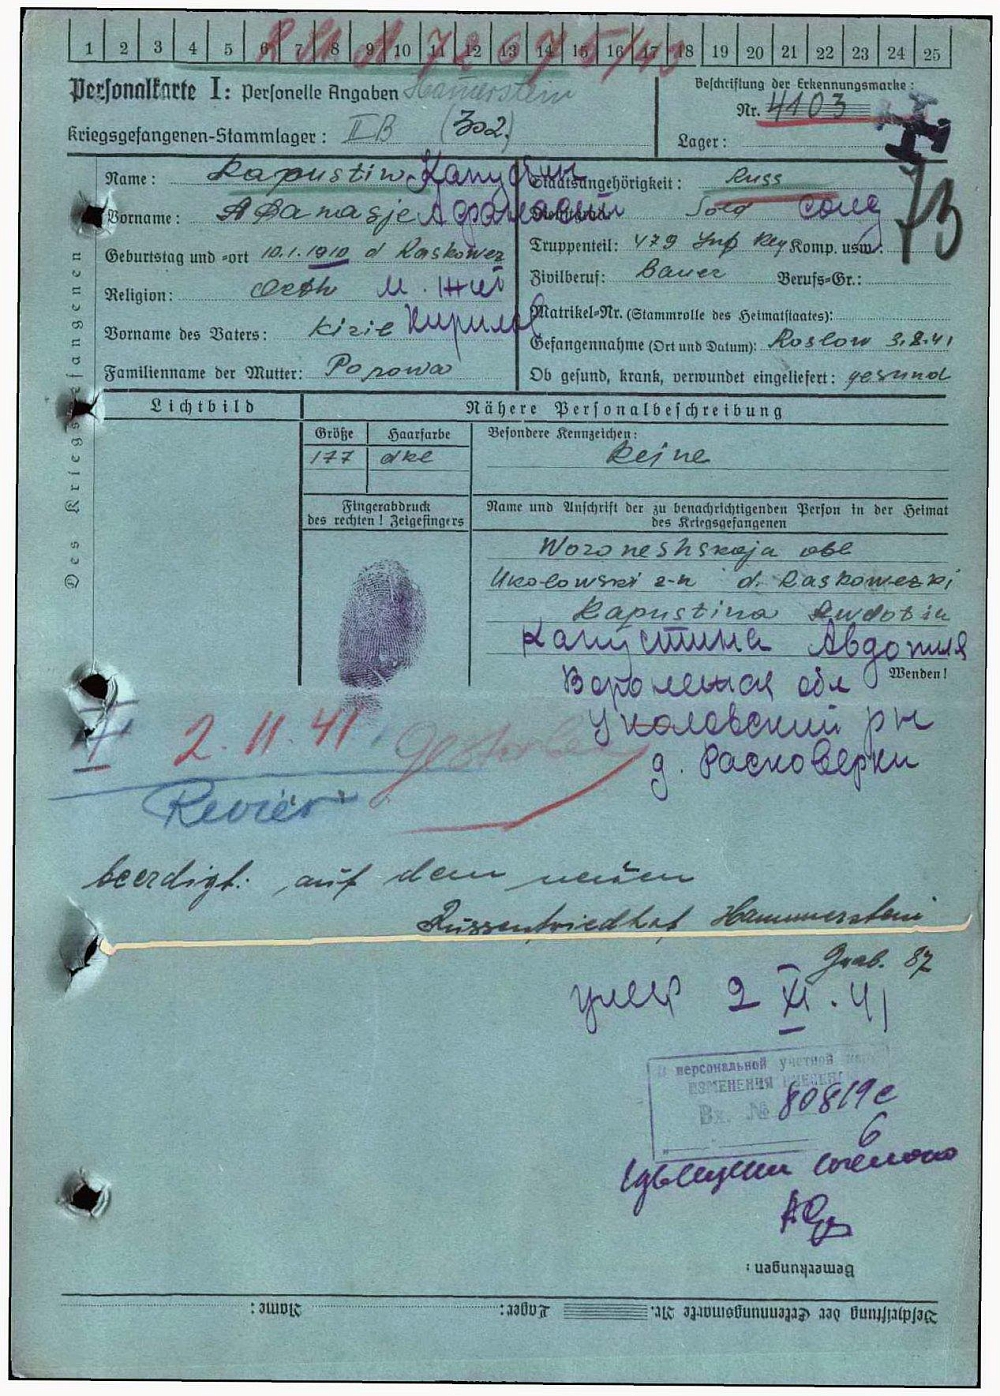 1 2 3 4 5 6 7 8 9 10 11 12 13 14 15 16 17 18 19 20 21 22 23 24 25
Personalkarte I: Personelle Angaben Hamerstein
Beschriftung der Erkennungsmarke:
Nr. 4103
Kriegsgefangenen-Stammlager: II B (302)
Lager:
73
Des Kriegsgefangenen
Name: Kapustin Капустин
Vorname: Afanasje Афанасий
Geburtstag und -ort 10.1.1910 d Raskowez
Religion: Orth
Vorname des Vaters: Kiril Кирилов
Familienname der Mutter: Popowa
Staatsangehörigkeit: Russ
Sold солд
Truppenteil: 479 Inf Reg Komp. usw.:
Zivilberuf: Bauer Berufs-Gr.:
Matrikel-Nr. (Stammrolle des Heimatstaates):
Gefangennahme (Ort und Datum): Roslow 3.8.41
Ob gesund, krank, verwundet eingeliefert: gesund
Lichtbild
Nähere Personalbeschreibung
Größe Haarfarbe Besondere Kennzeichen:
177 dkl keine
Fingerabdruck
des rechten! Zeigefingers
Name und Anschrift der zu benachrichtigenden Person in der Heimat
des Kriegsgefangenen
Woroneshskaja obl
Ukolowski r-n d. Raskowezki
Kapustina Awdotia
Капустина Авдотия
Wenden!
Воронежская обл
Уколовский рн
д. Расковерки
2.11.41 gestorben
Revier
beerdigt: auf dem neuen
Russenfriedhof Hammerstein
Grab. 87
умер 2 XI. 41
В персональной учетной
ИЗМЕНЕНИЯ ВНЕСЕНЫ
Вх. № 80819с
Bemerkungen:
Name: Lager: Beschriftung der Erkennungsmarke Nr.